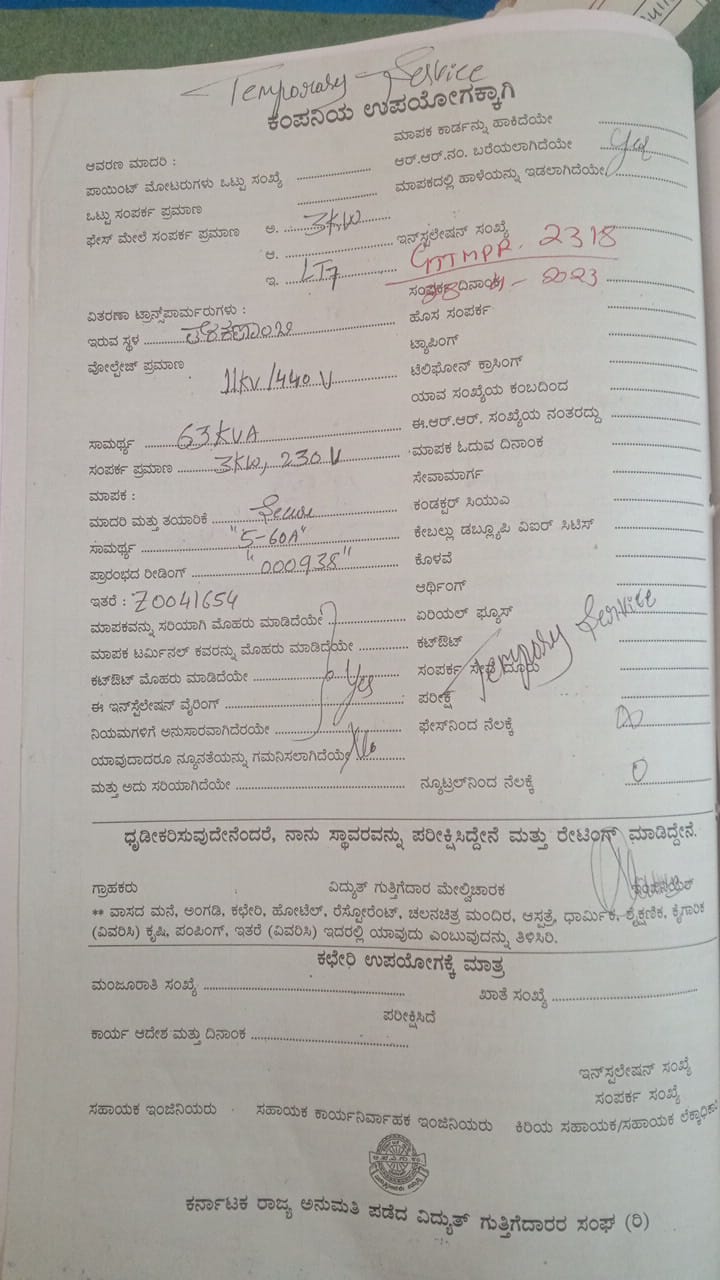 Temporary Service
ಕಂಪನಿಯ ಉಪಯೋಗಕ್ಕಾಗಿ
ಆವರಣ ಮಾದರಿ :
ಮಾಪಕ ಕಾರ್ಡನ್ನು ಹಾಕಿದೆಯೇ ....................
ಪಾಯಿಂಟ್ ಮೋಟರುಗಳು ಒಟ್ಟು ಸಂಖ್ಯೆ ....................
ಆರ್.ಆರ್.ನಂ. ಬರೆಯಲಾಗಿದೆಯೇ .................... Yes
ಒಟ್ಟು ಸಂಪರ್ಕ ಪ್ರಮಾಣ ....................
ಮಾಪಕದಲ್ಲಿ ಹಾಳೆಯನ್ನು ಇಡಲಾಗಿದೆಯೇ ....................
ಫೇಸ್ ಮೇಲೆ ಸಂಪರ್ಕ ಪ್ರಮಾಣ ಅ. 3KW
ಆ. .................... ಇನ್‌ಸ್ಟಲೇಷನ್ ಸಂಖ್ಯೆ
ಇ. LT7 GMTMPR. 2318
ಸಂಪರ್ಕ ದಿನಾಂಕ 2023
ವಿತರಣಾ ಟ್ರಾನ್ಸ್‌ಪಾರ್ಮರುಗಳು :
ಹೊಸ ಸಂಪರ್ಕ ....................
ಇರುವ ಸ್ಥಳ ....................
ಟ್ಯಾಪಿಂಗ್ ....................
ವೋಲ್ಟೇಜ್ ಪ್ರಮಾಣ 11KV/440V
ಟೆಲಿಫೋನ್ ಕ್ರಾಸಿಂಗ್ ....................
ಯಾವ ಸಂಖ್ಯೆಯ ಕಂಬದಿಂದ ....................
ಸಾಮರ್ಥ್ಯ 63KVA
ಈ.ಆರ್.ಆರ್. ಸಂಖ್ಯೆಯ ನಂತರದ್ದು ....................
ಸಂಪರ್ಕ ಪ್ರಮಾಣ 3KW, 230V
ಮಾಪಕ ಓದುವ ದಿನಾಂಕ ....................
ಮಾಪಕ :
ಸೇವಾಮಾರ್ಗ ....................
ಮಾದರಿ ಮತ್ತು ತಯಾರಿಕೆ ....................
ಕಂಡಕ್ಟರ್ ಸಿಯುಎ ....................
ಸಾಮರ್ಥ್ಯ "5-60A"
ಕೇಬಲ್ಲು ಡಬ್ಲ್ಯೂಪಿ ವಿಐರ್ ಸಿಟಿಸ್ ....................
ಪ್ರಾರಂಭದ ರೀಡಿಂಗ್ "000938"
ಕೊಳವೆ ....................
ಇತರೆ : Z0041654
ಆರ್ಥಿಂಗ್ ....................
ಮಾಪಕವನ್ನು ಸರಿಯಾಗಿ ಮೊಹರು ಮಾಡಿದೆಯೇ ....................
ಏರಿಯಲ್ ಫ್ಯೂಸ್ ....................
ಮಾಪಕ ಟರ್ಮಿನಲ್ ಕವರನ್ನು ಮೊಹರು ಮಾಡಿದೆಯೇ ....................
ಕಟ್‌ಔಟ್ ....................
ಕಟ್‌ಔಟ್ ಮೊಹರು ಮಾಡಿದೆಯೇ .................... Yes
ಸಂಪರ್ಕ Temporary Service
ಈ ಇನ್‌ಸ್ಟಲೇಷನ್ ವೈರಿಂಗ್ ....................
ಪರೀಕ್ಷೆ ....................
ನಿಯಮಗಳಿಗೆ ಅನುಸಾರವಾಗಿದೆರಯೇ ....................
ಫೇಸ್‌ನಿಂದ ನೆಲಕ್ಕೆ ....................
ಯಾವುದಾದರೂ ನ್ಯೂನತೆಯನ್ನು ಗಮನಿಸಲಾಗಿದೆಯೇ No
ಮತ್ತು ಅದು ಸರಿಯಾಗಿದೆಯೇ ....................
ನ್ಯೂಟ್ರಲ್‌ನಿಂದ ನೆಲಕ್ಕೆ 0
ಧೃಡೀಕರಿಸುವುದೇನೆಂದರೆ, ನಾನು ಸ್ಥಾವರವನ್ನು ಪರೀಕ್ಷಿಸಿದ್ದೇನೆ ಮತ್ತು ರೇಟಿಂಗ್ ಮಾಡಿದ್ದೇನೆ.
ಗ್ರಾಹಕರು ವಿದ್ಯುತ್ ಗುತ್ತಿಗೆದಾರ ಮೇಲ್ವಿಚಾರಕ
** ವಾಸದ ಮನೆ, ಅಂಗಡಿ, ಕಛೇರಿ, ಹೋಟೆಲ್, ರೆಸ್ಟೋರೆಂಟ್, ಚಲನಚಿತ್ರ ಮಂದಿರ, ಆಸ್ಪತ್ರೆ, ಧಾರ್ಮಿಕ, ಶೈಕ್ಷಣಿಕ, ಕೈಗಾರಿಕ
(ವಿವರಿಸಿ) ಕೃಷಿ, ಪಂಪಿಂಗ್, ಇತರೆ (ವಿವರಿಸಿ) ಇದರಲ್ಲಿ ಯಾವುದು ಎಂಬುವುದನ್ನು ತಿಳಿಸಿರಿ.
ಕಛೇರಿ ಉಪಯೋಗಕ್ಕೆ ಮಾತ್ರ
ಮಂಜೂರಾತಿ ಸಂಖ್ಯೆ .................... ಖಾತೆ ಸಂಖ್ಯೆ ....................
ಪರೀಕ್ಷಿಸಿದೆ
ಕಾರ್ಯ ಆದೇಶ ಮತ್ತು ದಿನಾಂಕ ....................
ಇನ್‌ಸ್ಟಲೇಷನ್ ಸಂಖ್ಯೆ
ಸಂಪರ್ಕ ಸಂಖ್ಯೆ
ಸಹಾಯಕ ಇಂಜಿನಿಯರು ಸಹಾಯಕ ಕಾರ್ಯನಿರ್ವಾಹಕ ಇಂಜಿನಿಯರು ಕಿರಿಯ ಸಹಾಯಕ/ಸಹಾಯಕ
ಕರ್ನಾಟಕ ರಾಜ್ಯ ಅನುಮತಿ ಪಡೆದ ವಿದ್ಯುತ್ ಗುತ್ತಿಗೆದಾರರ ಸಂಘ (ರಿ)